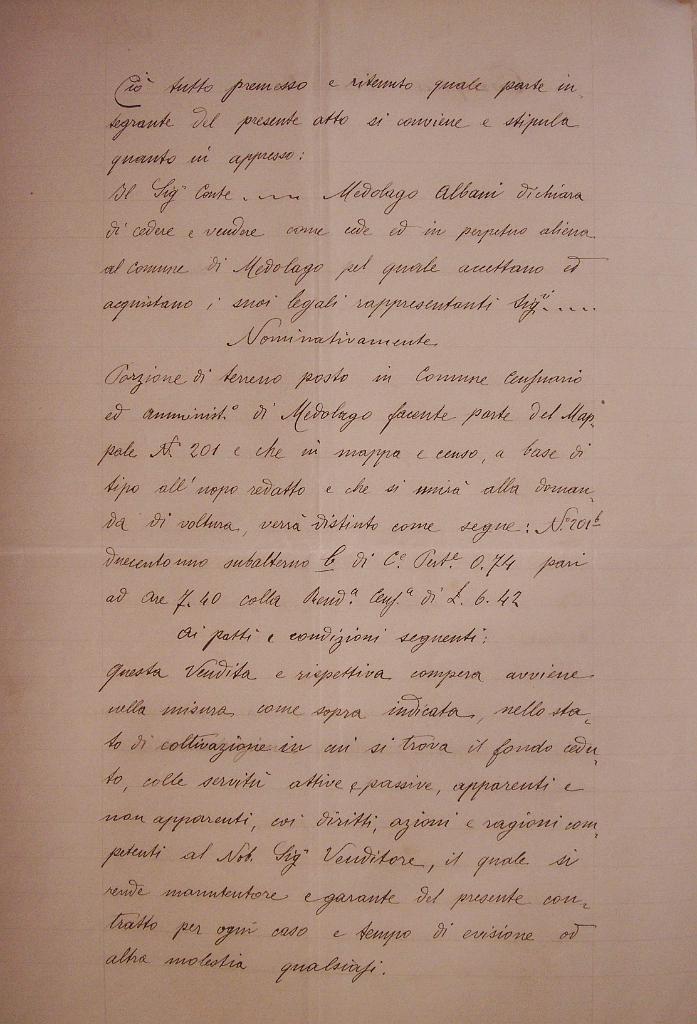 Ciò tutto premesso e ritenuto quale parte in-
tegrante del presente atto si conviene e stipula
quanto in appresso:
Il Sigr Conte .... Medolago Albani dichiara
di cedere e vendere come cede ed in perpetuo aliena
al comune di Medolago pel quale accettano ed
acquistano i suoi legali rappresentanti Sigri ....
Nominativamente
Porzione di terreno posto in Comune Censuario
ed amministo di Medolago facente parte del Map-
pale No 201 e che in mappa e censo, a base di
tipo all'uopo redatto e che si unirà alla doman-
da di voltura, verrà distinto come segue: No 201 b
duecentouno subalterno b di Ce Perte 0.74 pari
ad are 7.40 colla Renda Censa di L. 6.42
Ai patti e condizioni seguenti:
Questa Vendita e rispettiva compera avviene
nella misura come sopra indicata, nello sta-
to di coltivazione in cui si trova il fondo cedu-
to, colle servitù attive e passive, apparenti e
non apparenti, coi diritti, azioni e ragioni com-
petenti al Nob. Sigr Venditore, il quale si
rende manutentore e garante del presente con-
tratto per ogni caso e tempo di evisione od
altra molestia qualsiasi.